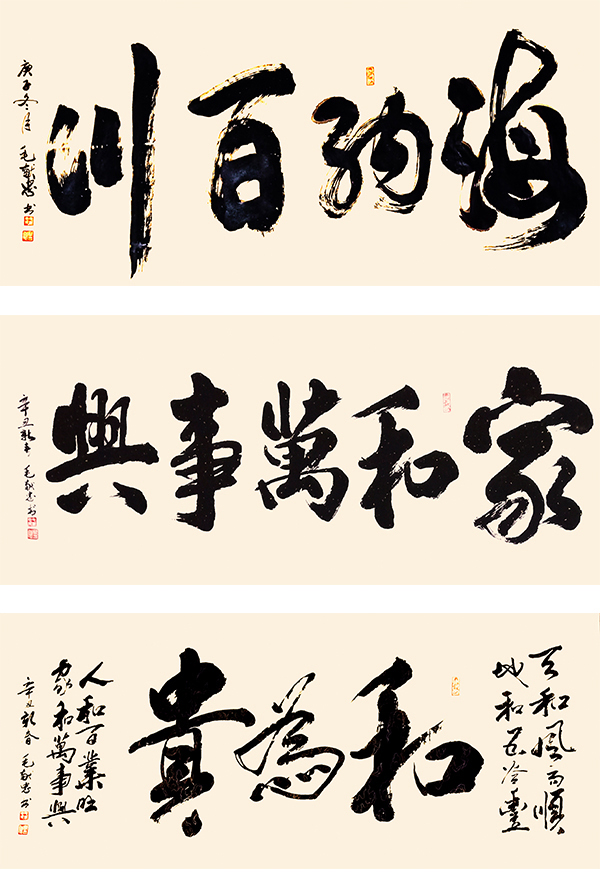 海納百川
庚子冬月 毛献忠书
家和萬事興
辛丑新春 毛献忠书
天和風雨順
地和五谷豐
和為貴
人和百業旺
家和萬事興
辛丑新春 毛献忠书